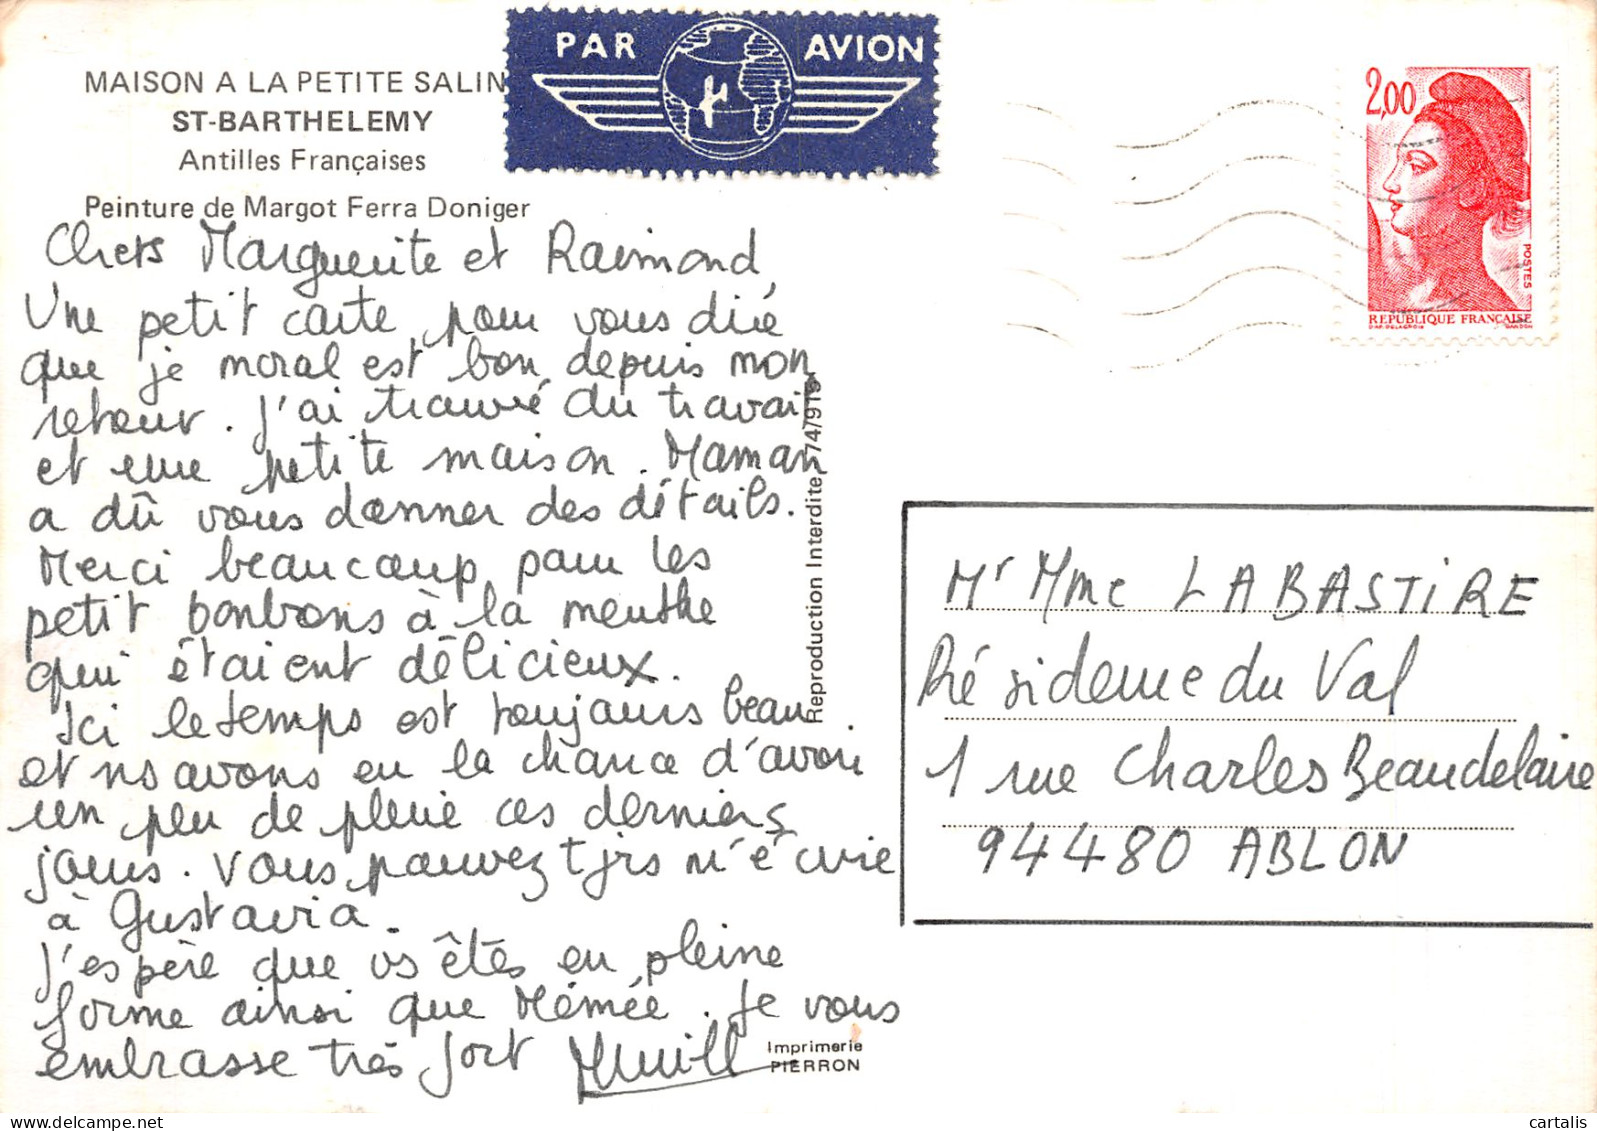 MAISON A LA PETITE SALIN
ST-BARTHELEMY
Antilles Françaises
Peinture de Margot Ferra Doniger
PAR AVION
2,00
POSTES
REPUBLIQUE FRANÇAISE
D'AP. DELACROIX GANDON
Chers Marguerite et Raimond
Une petit carte pour vous dire
que je moral est bon depuis mon
retour. J'ai trouvé du travail
et une petite maison. Maman
a dû vous donner des détails.
Merci beaucoup pour les
petit bonbons à la menthe
qui étaient délicieux.
Ici le temps est toujours beau
et ns avons eu la chance d'avoir
un peu de pluie ces derniers
jours. Vous pouvez tjrs m'écrire
à Gustavia.
J'espère que vs êtes en pleine
forme ainsi que Mémée. Je vous
embrasse très fort
Reproduction Interdite 74/919
Imprimerie
PIERRON
Mr Mme LABASTIRE
Résidence du Val
1 rue Charles Beaudelaire
94480 ABLON
cartalis